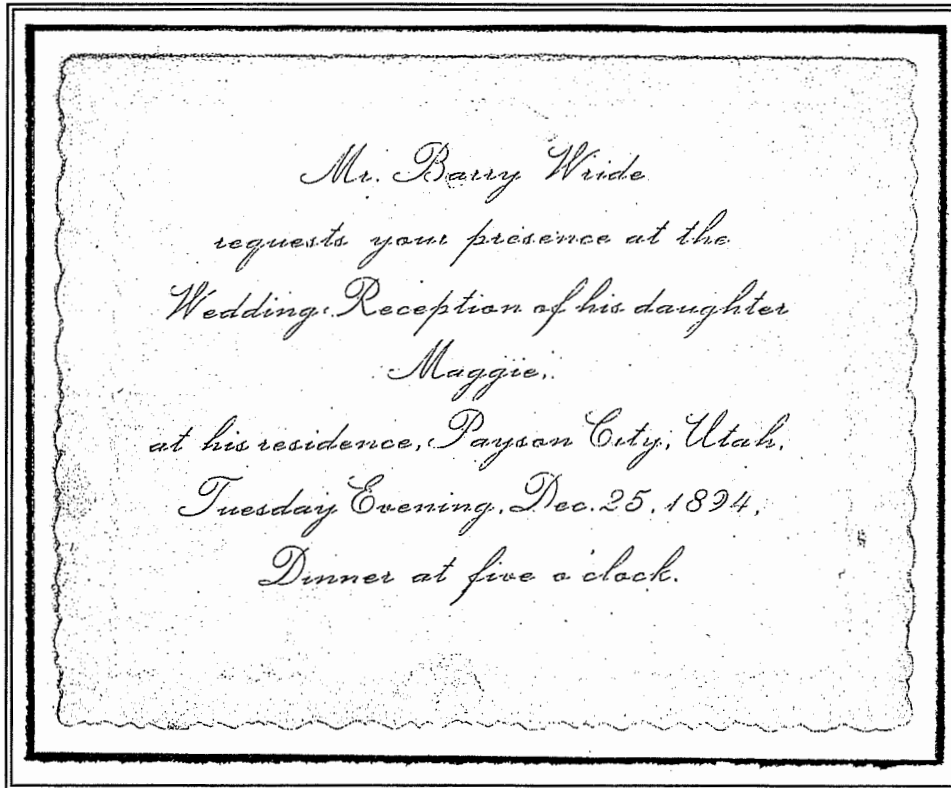 Mr. Barry Wride
requests your presence at the
Wedding Reception of his daughter
Maggie,
at his residence, Payson City, Utah,
Tuesday Evening, Dec. 25, 1894,
Dinner at five o'clock.